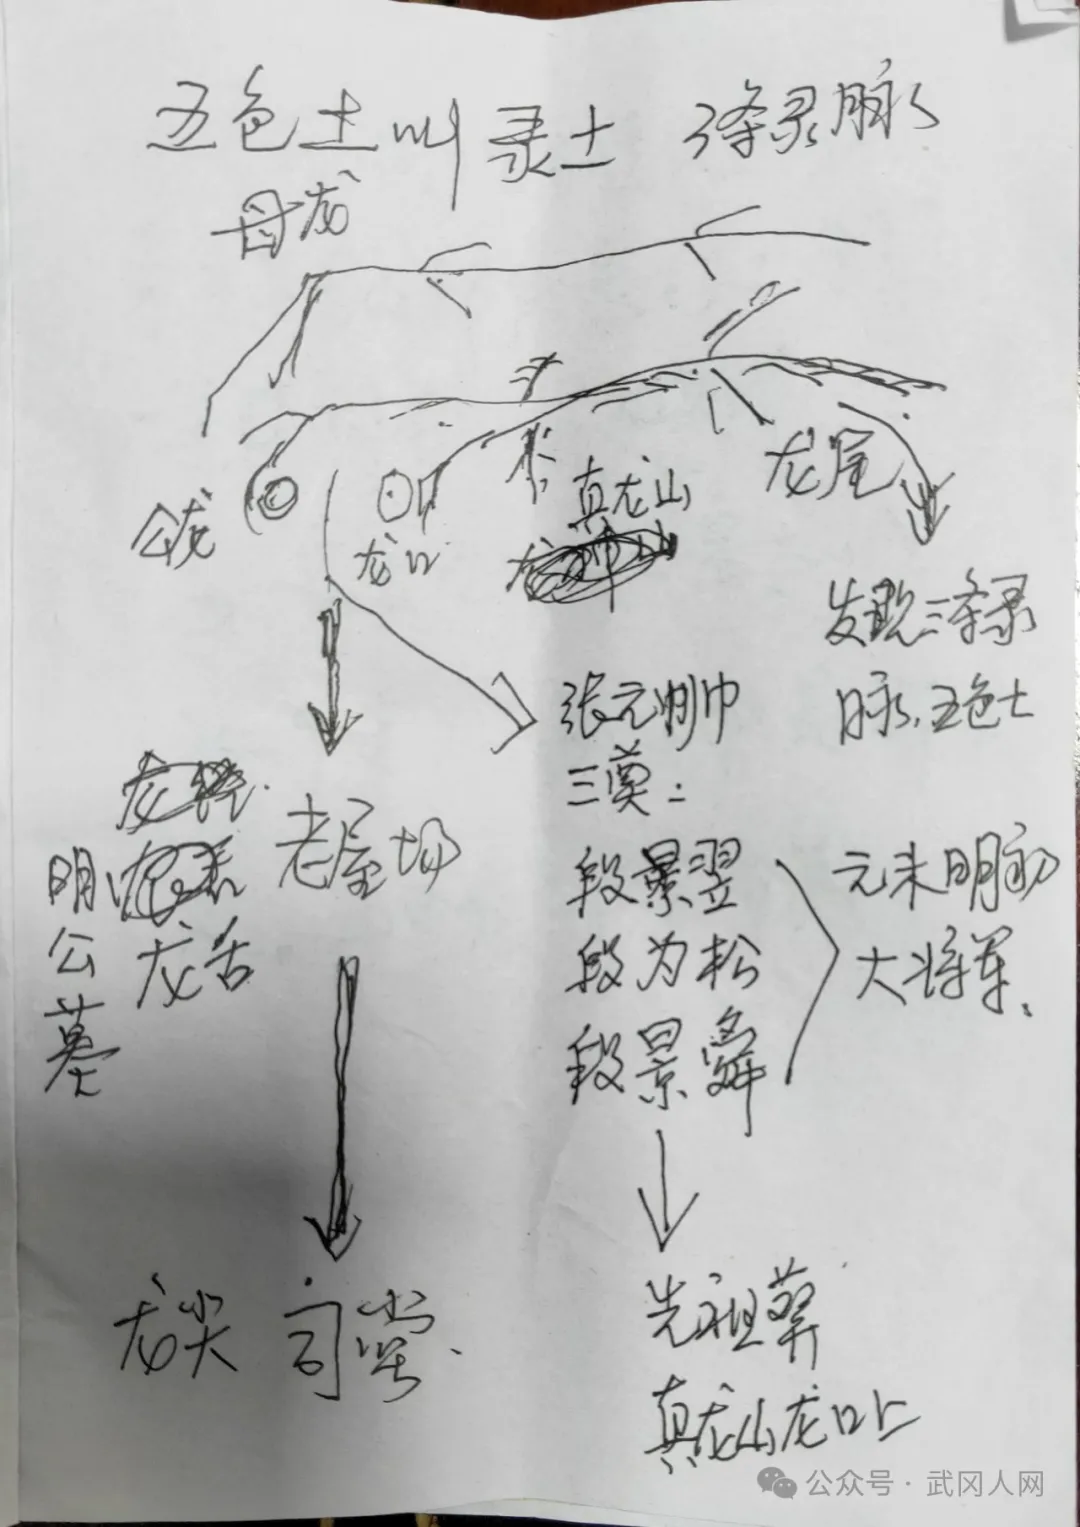 五色土叫录土 3条录脉
母龙
公龙
龙口
真龙山
龙尾
发现三条录
脉,五色土
张元帅
三奠:
段景翌
段为松
段景舜
元末明初
大将军.
老屋场
龙舌
明公墓
龙尖 司堂.
先祖葬
真龙山龙口上
公众号·武冈人网